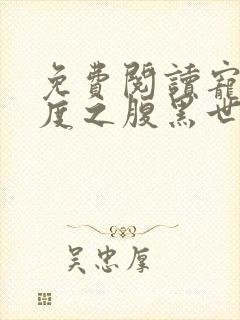 免費閱讀寵
度之腹黑世
吳忠厚